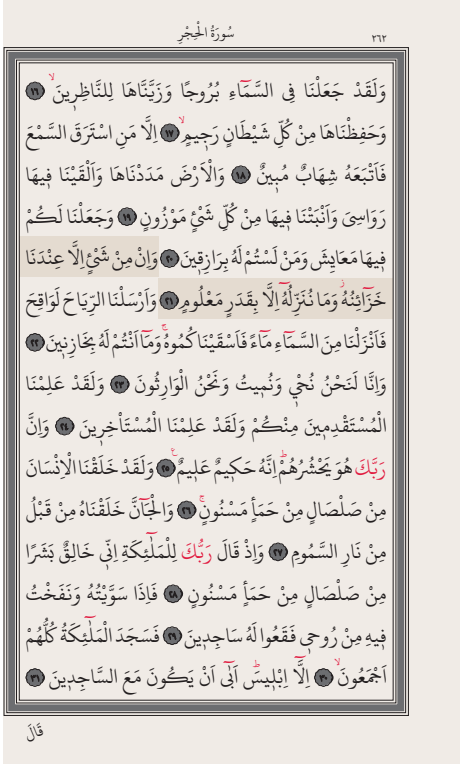 ٢٦٢ سُورَةُ الْحِجْرِ
وَلَقَدْ جَعَلْنَا فِى السَّمَٓاءِ بُرُوجًا وَزَيَّنَّاهَا لِلنَّاظِر۪ينَۙ ﴿١٦﴾
وَحَفِظْنَاهَا مِنْ كُلِّ شَيْطَانٍ رَج۪يمٍۙ ﴿١٧﴾ اِلَّا مَنِ اسْتَرَقَ السَّمْعَ
فَاَتْبَعَهُ شِهَابٌ مُب۪ينٌ ﴿١٨﴾ وَالْاَرْضَ مَدَدْنَاهَا وَاَلْقَيْنَا ف۪يهَا
رَوَاسِىَ وَاَنْبَتْنَا ف۪يهَا مِنْ كُلِّ شَىْءٍ مَوْزُونٍ ﴿١٩﴾ وَجَعَلْنَا لَكُمْ
ف۪يهَا مَعَايِشَ وَمَنْ لَسْتُمْ لَهُ بِرَازِق۪ينَ ﴿٢٠﴾ وَاِنْ مِنْ شَىْءٍ اِلَّا عِنْدَنَا
خَزَٓائِنُهُۘ وَمَا نُنَزِّلُهُٓ اِلَّا بِقَدَرٍ مَعْلُومٍ ﴿٢١﴾ وَاَرْسَلْنَا الرِّيَاحَ لَوَاقِحَ
فَاَنْزَلْنَا مِنَ السَّمَٓاءِ مَٓاءً فَاَسْقَيْنَاكُمُوهُۚ وَمَٓا اَنْتُمْ لَهُ بِخَازِن۪ينَ ﴿٢٢﴾
وَاِنَّا لَنَحْنُ نُحْي۪ وَنُم۪يتُ وَنَحْنُ الْوَارِثُونَ ﴿٢٣﴾ وَلَقَدْ عَلِمْنَا
الْمُسْتَقْدِم۪ينَ مِنْكُمْ وَلَقَدْ عَلِمْنَا الْمُسْتَاْخِر۪ينَ ﴿٢٤﴾ وَاِنَّ
رَبَّكَ هُوَ يَحْشُرُهُمْۜ اِنَّهُ حَك۪يمٌ عَل۪يمٌ۟ ﴿٢٥﴾ وَلَقَدْ خَلَقْنَا الْاِنْسَانَ
مِنْ صَلْصَالٍ مِنْ حَمَأٍ مَسْنُونٍۚ ﴿٢٦﴾ وَالْجَٓانَّ خَلَقْنَاهُ مِنْ قَبْلُ
مِنْ نَارِ السَّمُومِ ﴿٢٧﴾ وَاِذْ قَالَ رَبُّكَ لِلْمَلٰٓئِكَةِ اِنّ۪ى خَالِقٌ بَشَرًا
مِنْ صَلْصَالٍ مِنْ حَمَأٍ مَسْنُونٍ ﴿٢٨﴾ فَاِذَا سَوَّيْتُهُ وَنَفَخْتُ
ف۪يهِ مِنْ رُوح۪ى فَقَعُوا لَهُ سَاجِد۪ينَ ﴿٢٩﴾ فَسَجَدَ الْمَلٰٓئِكَةُ كُلُّهُمْ
اَجْمَعُونَۙ ﴿٣٠﴾ اِلَّٓا اِبْل۪يسَۜ اَبٰٓى اَنْ يَكُونَ مَعَ السَّاجِد۪ينَ ﴿٣١﴾
قَالَ